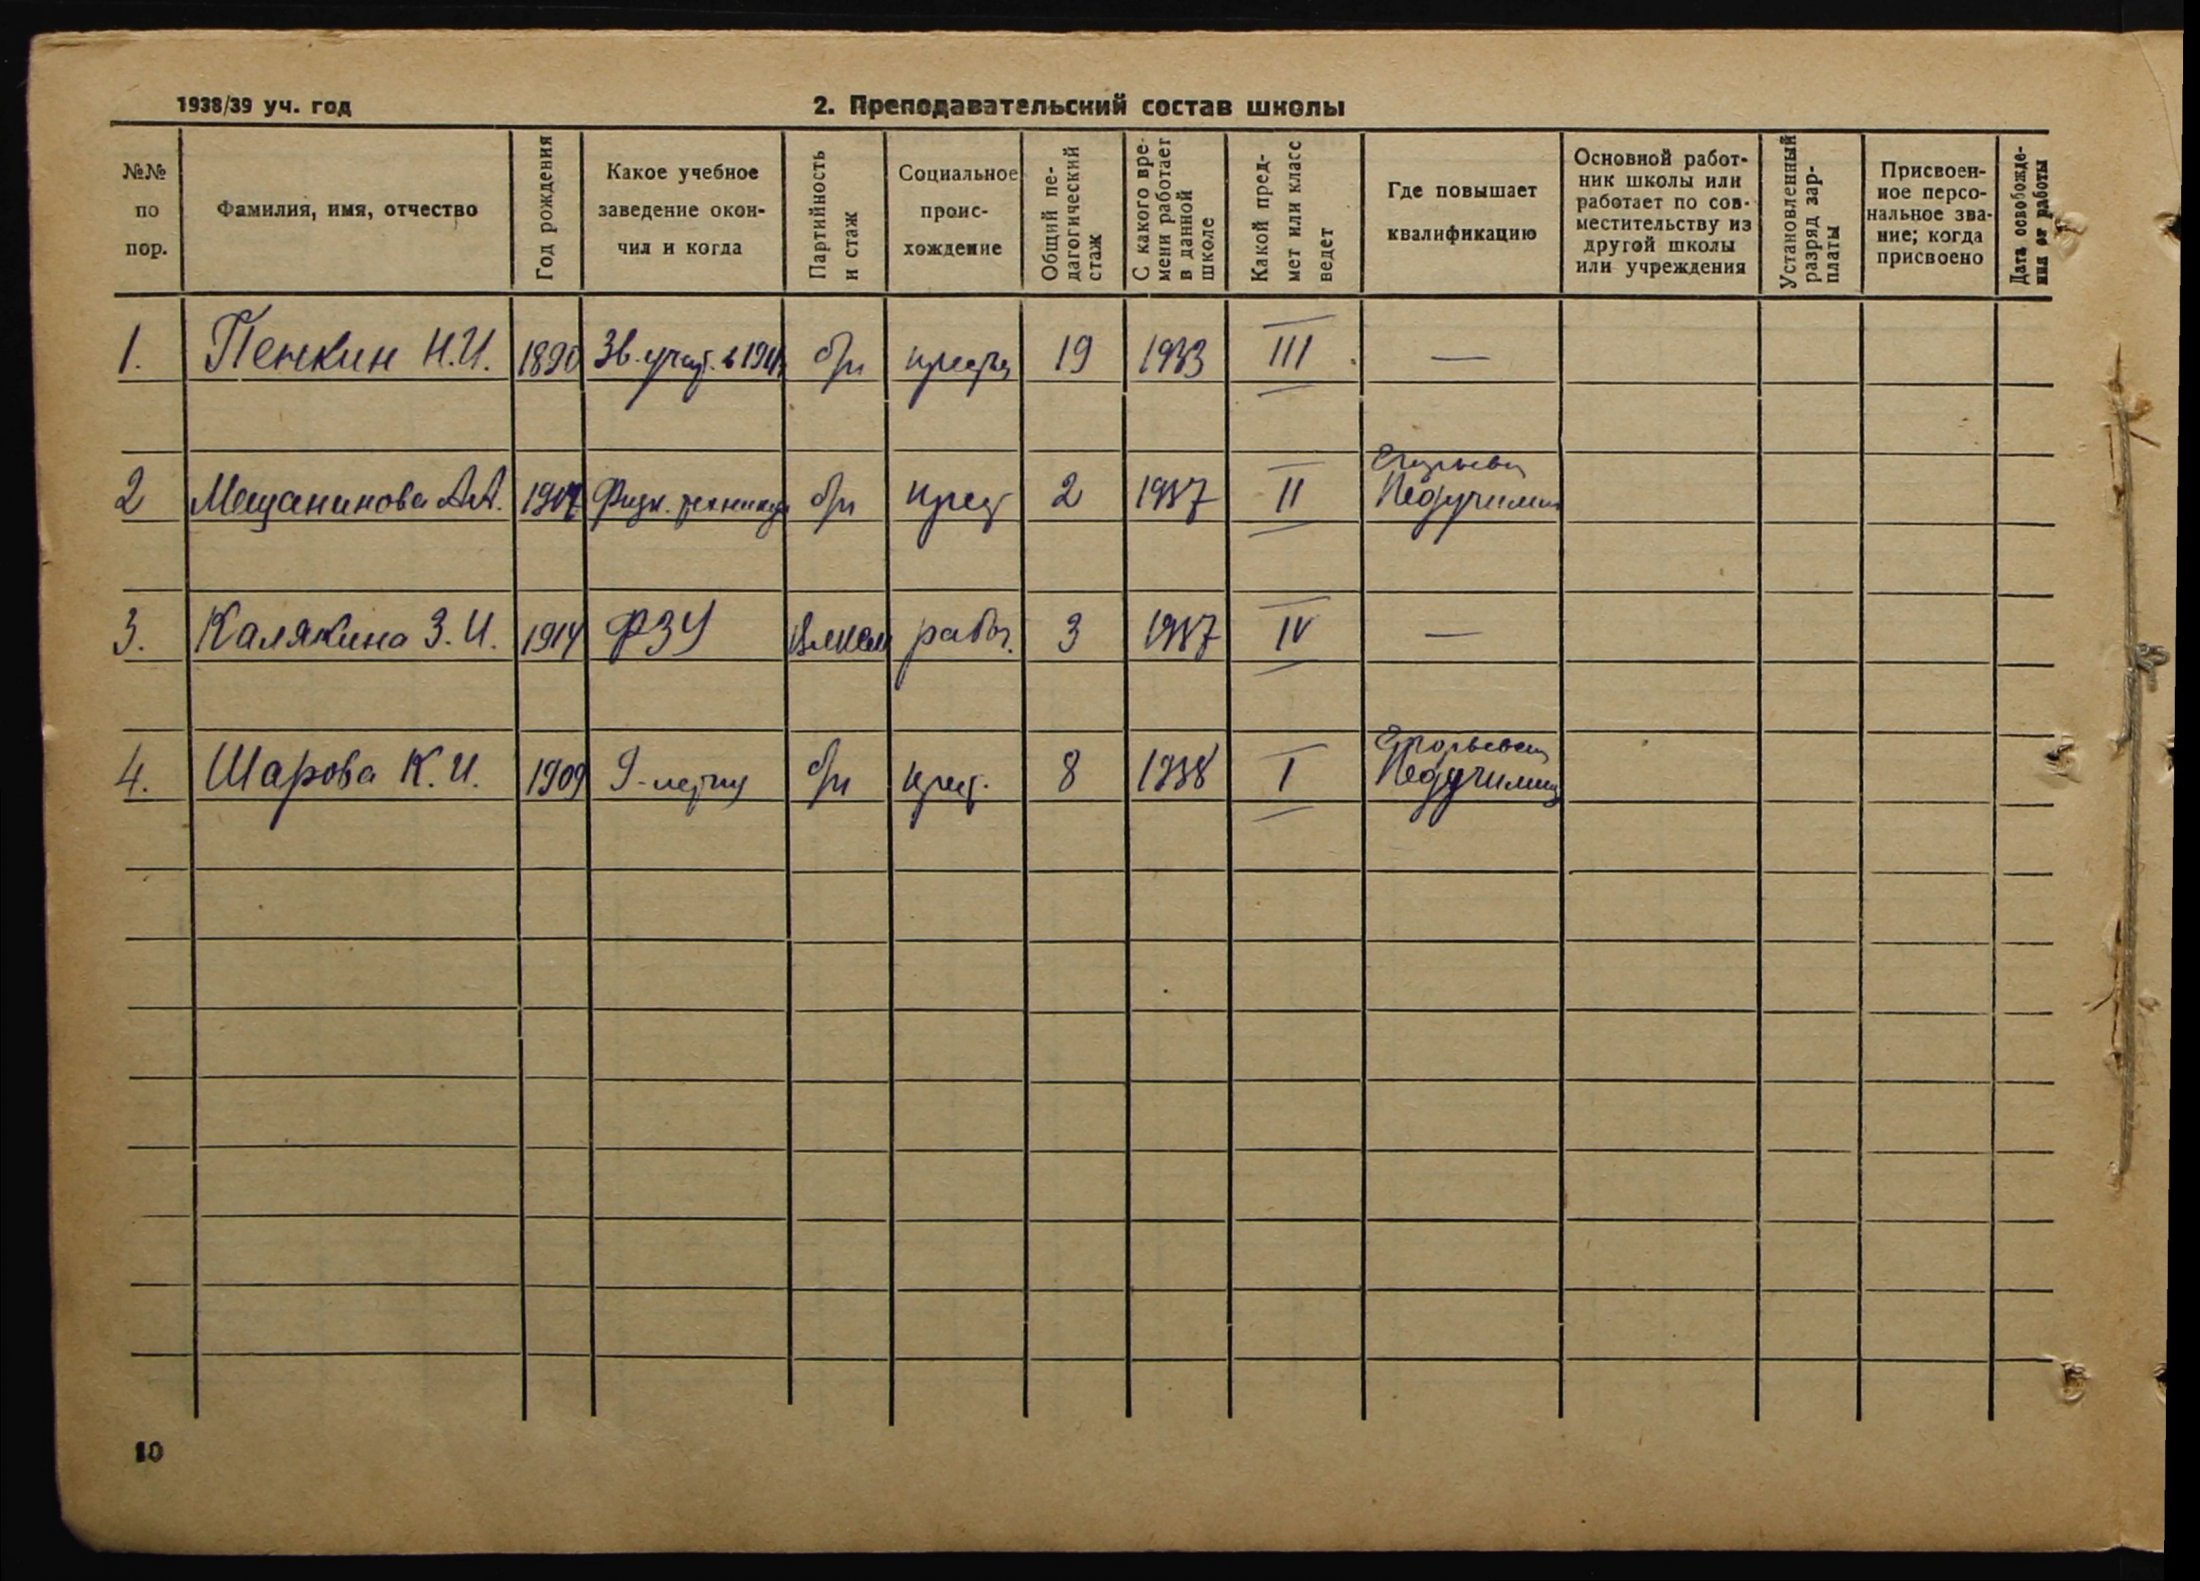 1938/39 уч. год 2. Преподавательский состав школы
№№ по пор.
Фамилия, имя, отчество
Год рождения
Какое учебное заведение окон-
чил и когда
Партийность и стаж
Социальное проис-
хождение
Общий пе-
дагогический стаж
С какого вре-
мени работает в данной школе
Какой пред-
мет или класс ведет
Где повышает квалификацию
Основной работ-
ник школы или работает по сов-
местительству из другой школы или учреждения
Установленный разряд зар-
платы
Присвоен-
ное персо-
нальное зва-
ние; когда присвоено
Дата освобожде-
ния от работы
1. Пенкин Н.И. 1890 б/п 19 1933 III —
2 Мещанинова А.А. б/п крест 2 1937 II
3. Калякина З.И. 1914 ФЗУ работ. 3 1937 IV —
4. Шарова К.И. 1909 9-летку б/п крест. 8 1938 I
10